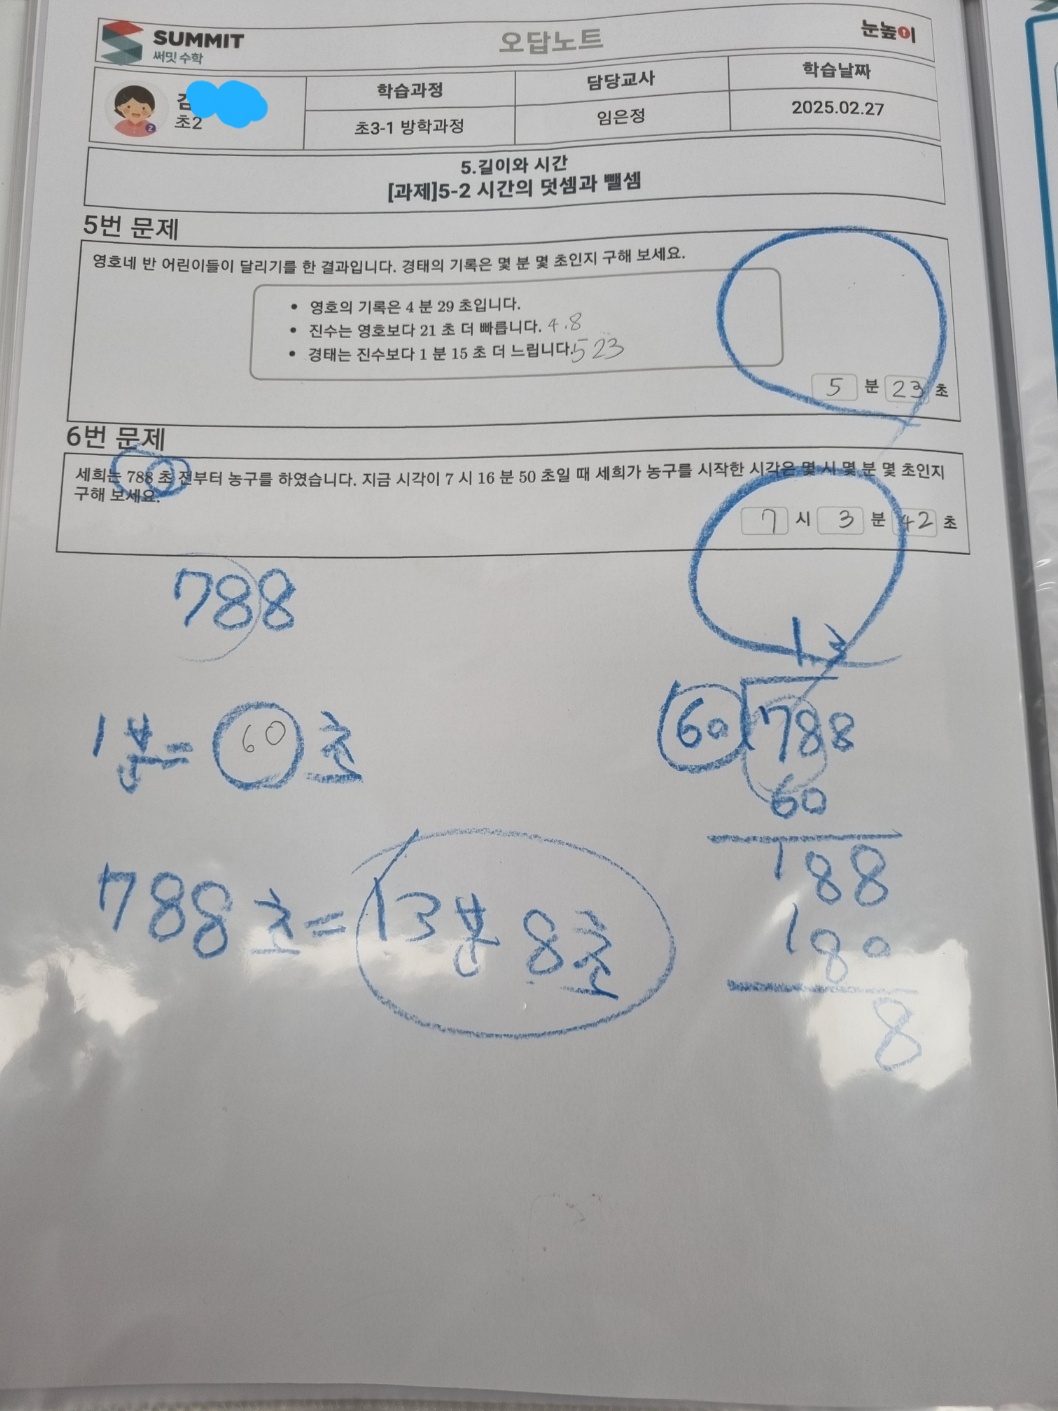 SUMMIT
써밋 수학
오답노트
눈높이
초2
학습과정
담당교사
학습날짜
초3-1 방학과정
임은정
2025.02.27
5.길이와 시간
[과제]5-2 시간의 덧셈과 뺄셈
5번 문제
영호네 반 어린이들이 달리기를 한 결과입니다. 경태의 기록은 몇 분 몇 초인지 구해 보세요.
• 영호의 기록은 4 분 29 초입니다.
• 진수는 영호보다 21 초 더 빠릅니다. 4.8
• 경태는 진수보다 1 분 15 초 더 느립니다. 523
5 분 23 초
6번 문제
세희는 788 초 전부터 농구를 하였습니다. 지금 시각이 7 시 16 분 50 초일 때 세희가 농구를 시작한 시각은 몇 시 몇 분 몇 초인지
구해 보세요.
7 시 3 분 42 초
788
1분= 60 초
788초=13분 8초
13
60 788
60
188
180
8